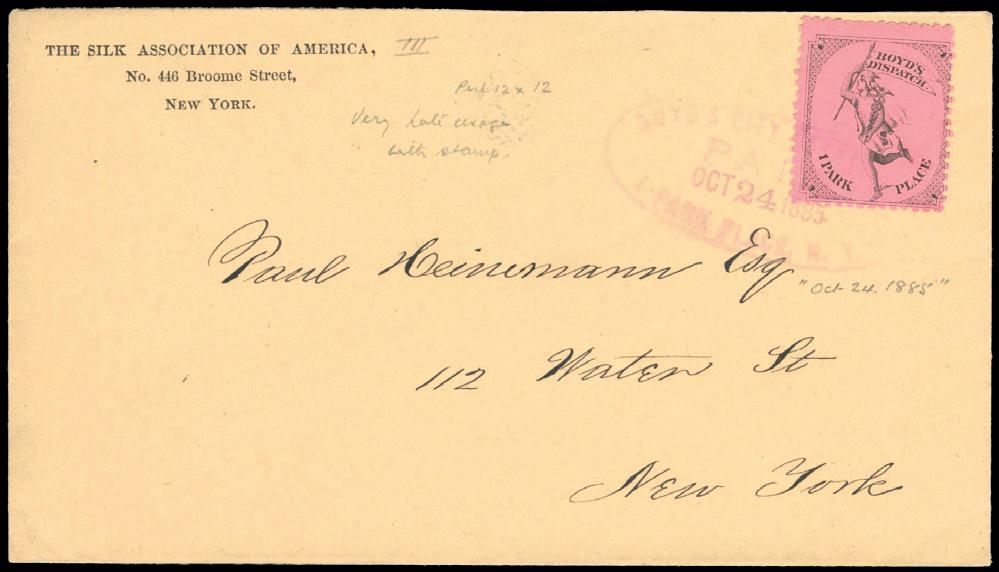 THE SILK ASSOCIATION OF AMERICA, III
No. 446 Broome Street,
NEW YORK.
Perf 12 x 12
Very Late usage
with stamp.
BOYD'S CITY
PAI
OCT 24 1885
1 PARK PLACE, N. Y.
BOYD'S
DISPATCH.
1 PARK PLACE
Paul Heinemann Esq
"Oct-24.1885"
112 Water St
New York